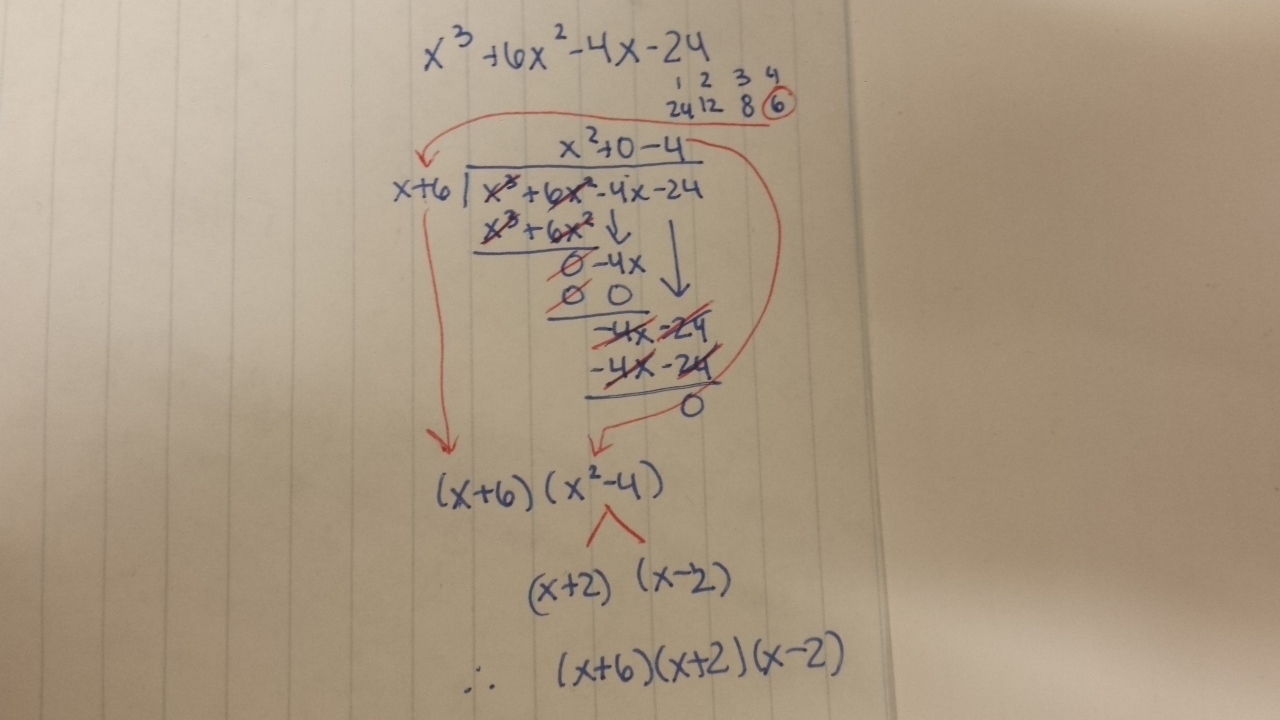 x³+6x²-4x-24
1 2 3 4
24 12 8 6
x²+0-4
x+6 | x³+6x²-4x-24
x³+6x²
0-4x
0 0
-4x-24
-4x-24
0
(x+6)(x²-4)
(x+2) (x-2)
∴ (x+6)(x+2)(x-2)